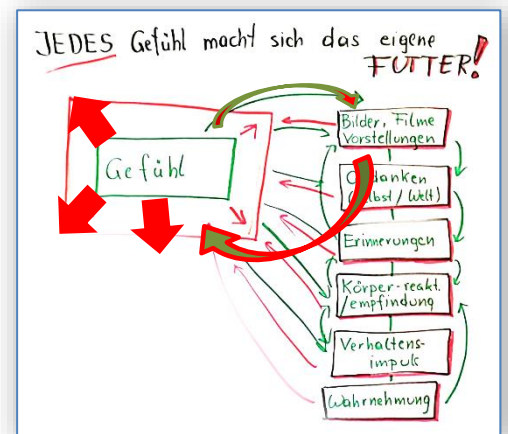 JEDES Gefühl macht sich das eigene
FUTTER!
Bilder, Filme
Vorstellungen
Gefühl
(Selbst / Welt)
Erinnerungen
Körper-reakt.
/empfindung
Verhaltens-
impuls
Wahrnehmung